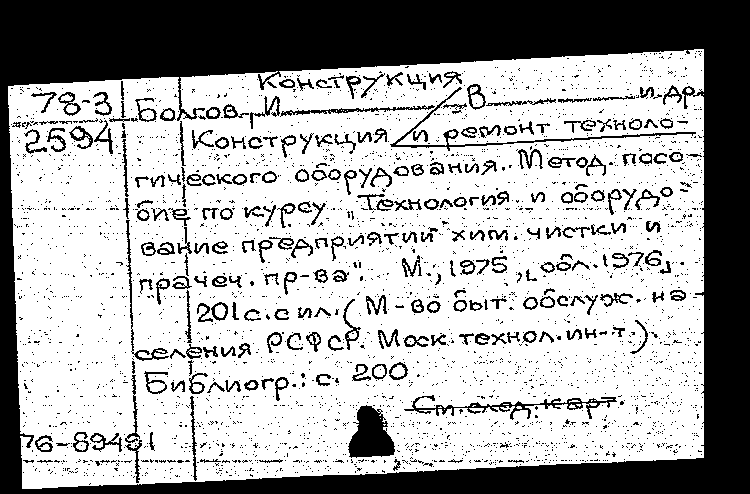 Конструкция
78-3 Болгов, И. В. и др.
2594 Конструкция и ремонт техноло-
гического оборудования. Метод. посо-
бие по курсу "Технология и оборудо-
вание предприятий хим. чистки и
прачеч. пр-ва". М., 1975, [обл. 1976].
201 с. с ил. (М-во быт. обслуж. на-
селения РСФСР. Моск. технол. ин-т).
Библиогр.: с. 200
См. след. карт.
76-89491